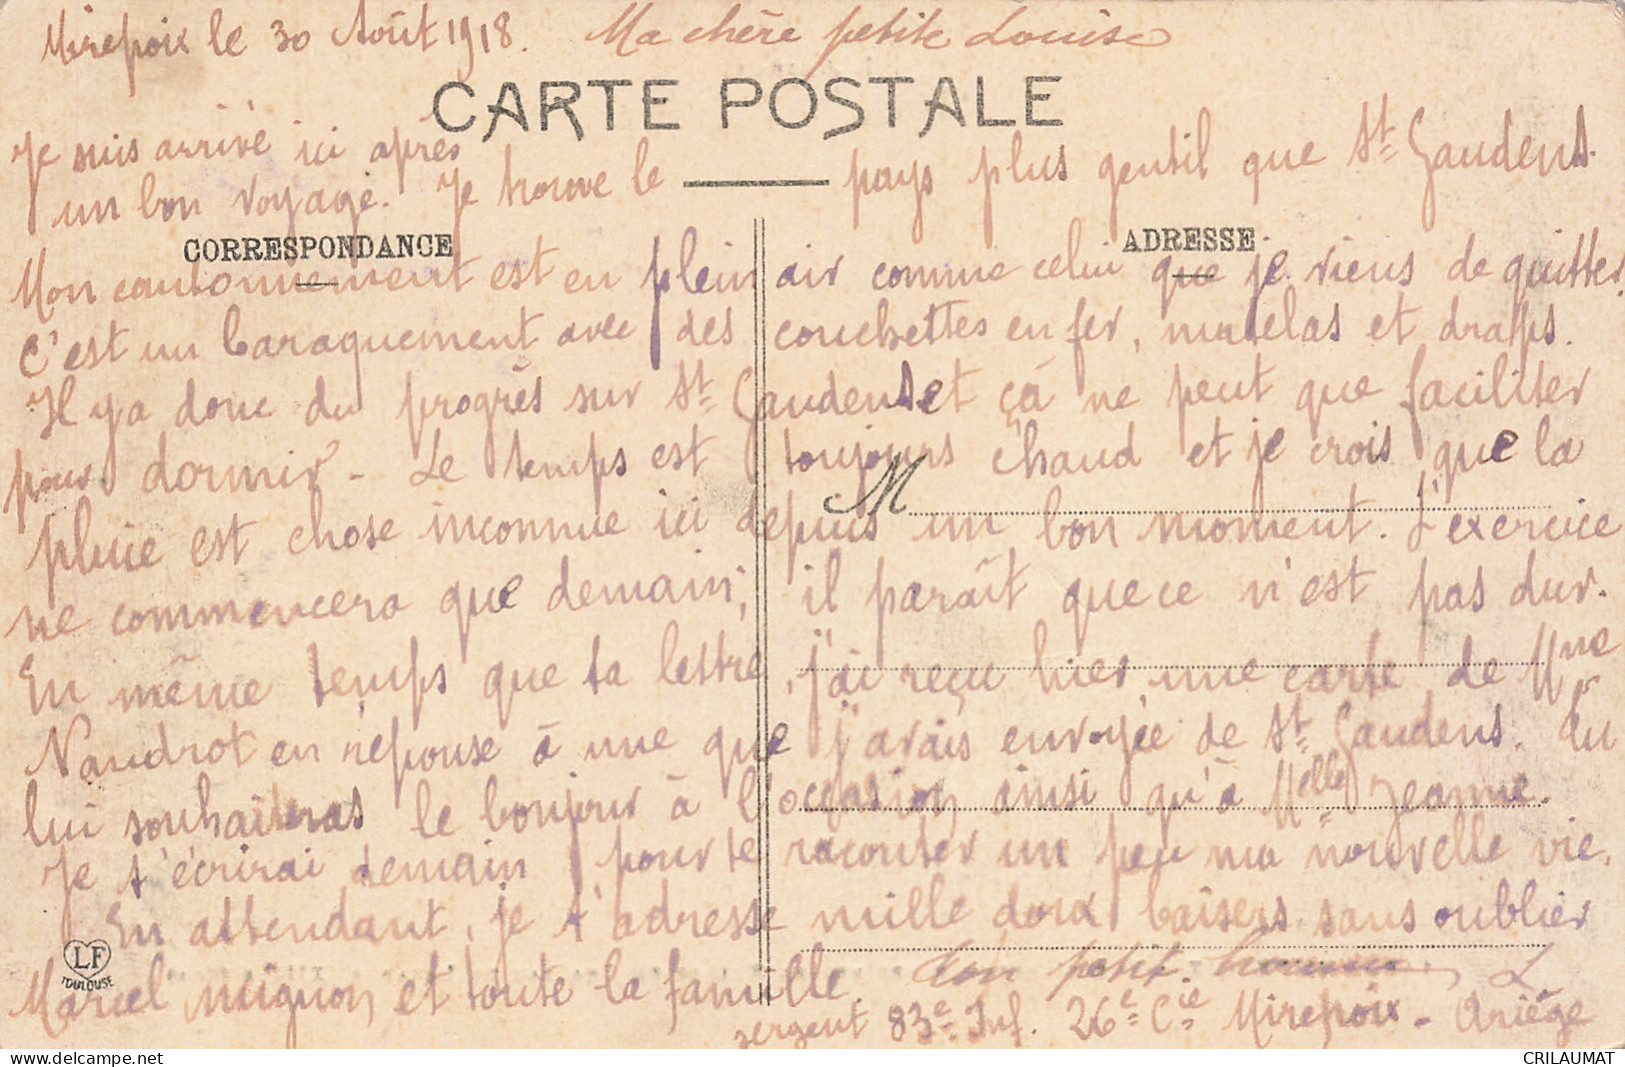 Mirepoix le 30 Août 1918. Ma chère petite Louise
CARTE POSTALE
Je suis arrivé ici après
un bon voyage. Je trouve le pays plus gentil que St Gaudens.
CORRESPONDANCE ADRESSE
Mon cantonnement est en plein air comme celui que je viens de quitter.
C'est un baraquement avec des couchettes en fer, matelas et draps.
Il y a donc du progrès sur St Gaudens et çà ne peut que faciliter
pour dormir - Le temps est toujours chaud et je crois que la
M
pluie est chose inconnue ici depuis un bon moment. L'exercice
ne commencera que demain, il parait que ce n'est pas dur.
En même temps que ta lettre, j'ai reçu hier une carte de Mme
Naudrot en réponse à une que j'avais envoyée de St Gaudens. Tu
lui souhaiteras le bonjour à l'occasion ainsi qu'à Melle Jeanne.
Je t'écrirai demain pour te raconter un peu ma nouvelle vie.
En attendant, je t'adresse mille doux baisers sans oublier
LF
TOULOUSE
Marcel mignon et toute la famille. Ton petit homme, L
sergent 83e Inf. 26e Cie Mirepoix - Ariège
CRILAUMAT